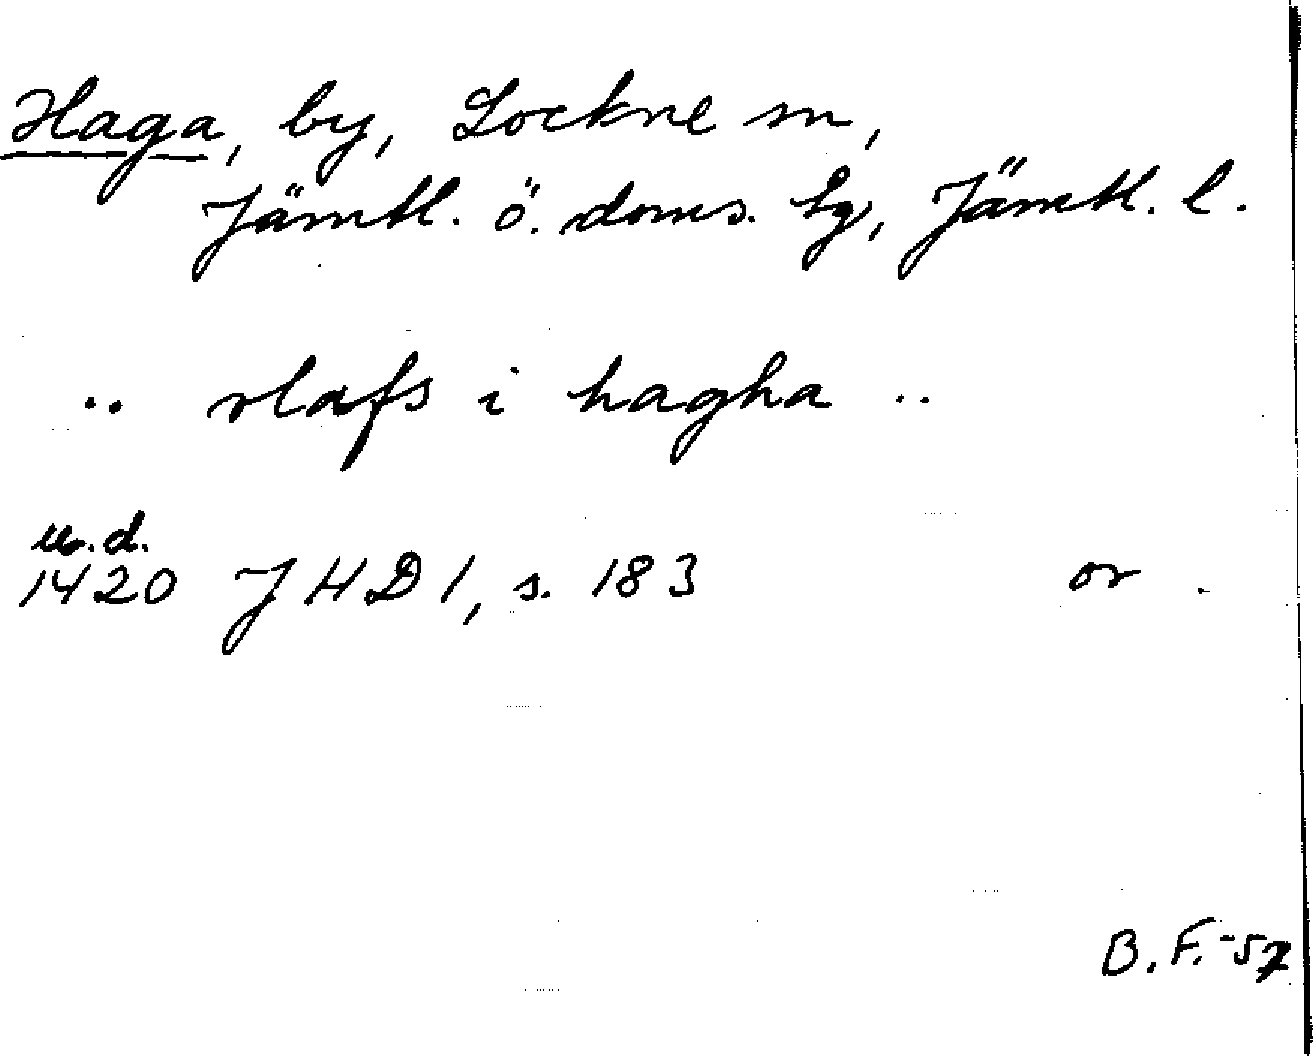 Haga, by, Lockne sn,
Jämtl. ö. doms. tg, Jämtl. l.
.. olafs i hagha ..
u.d.
1420 JHD 1, s. 183 or.
B.F.-57